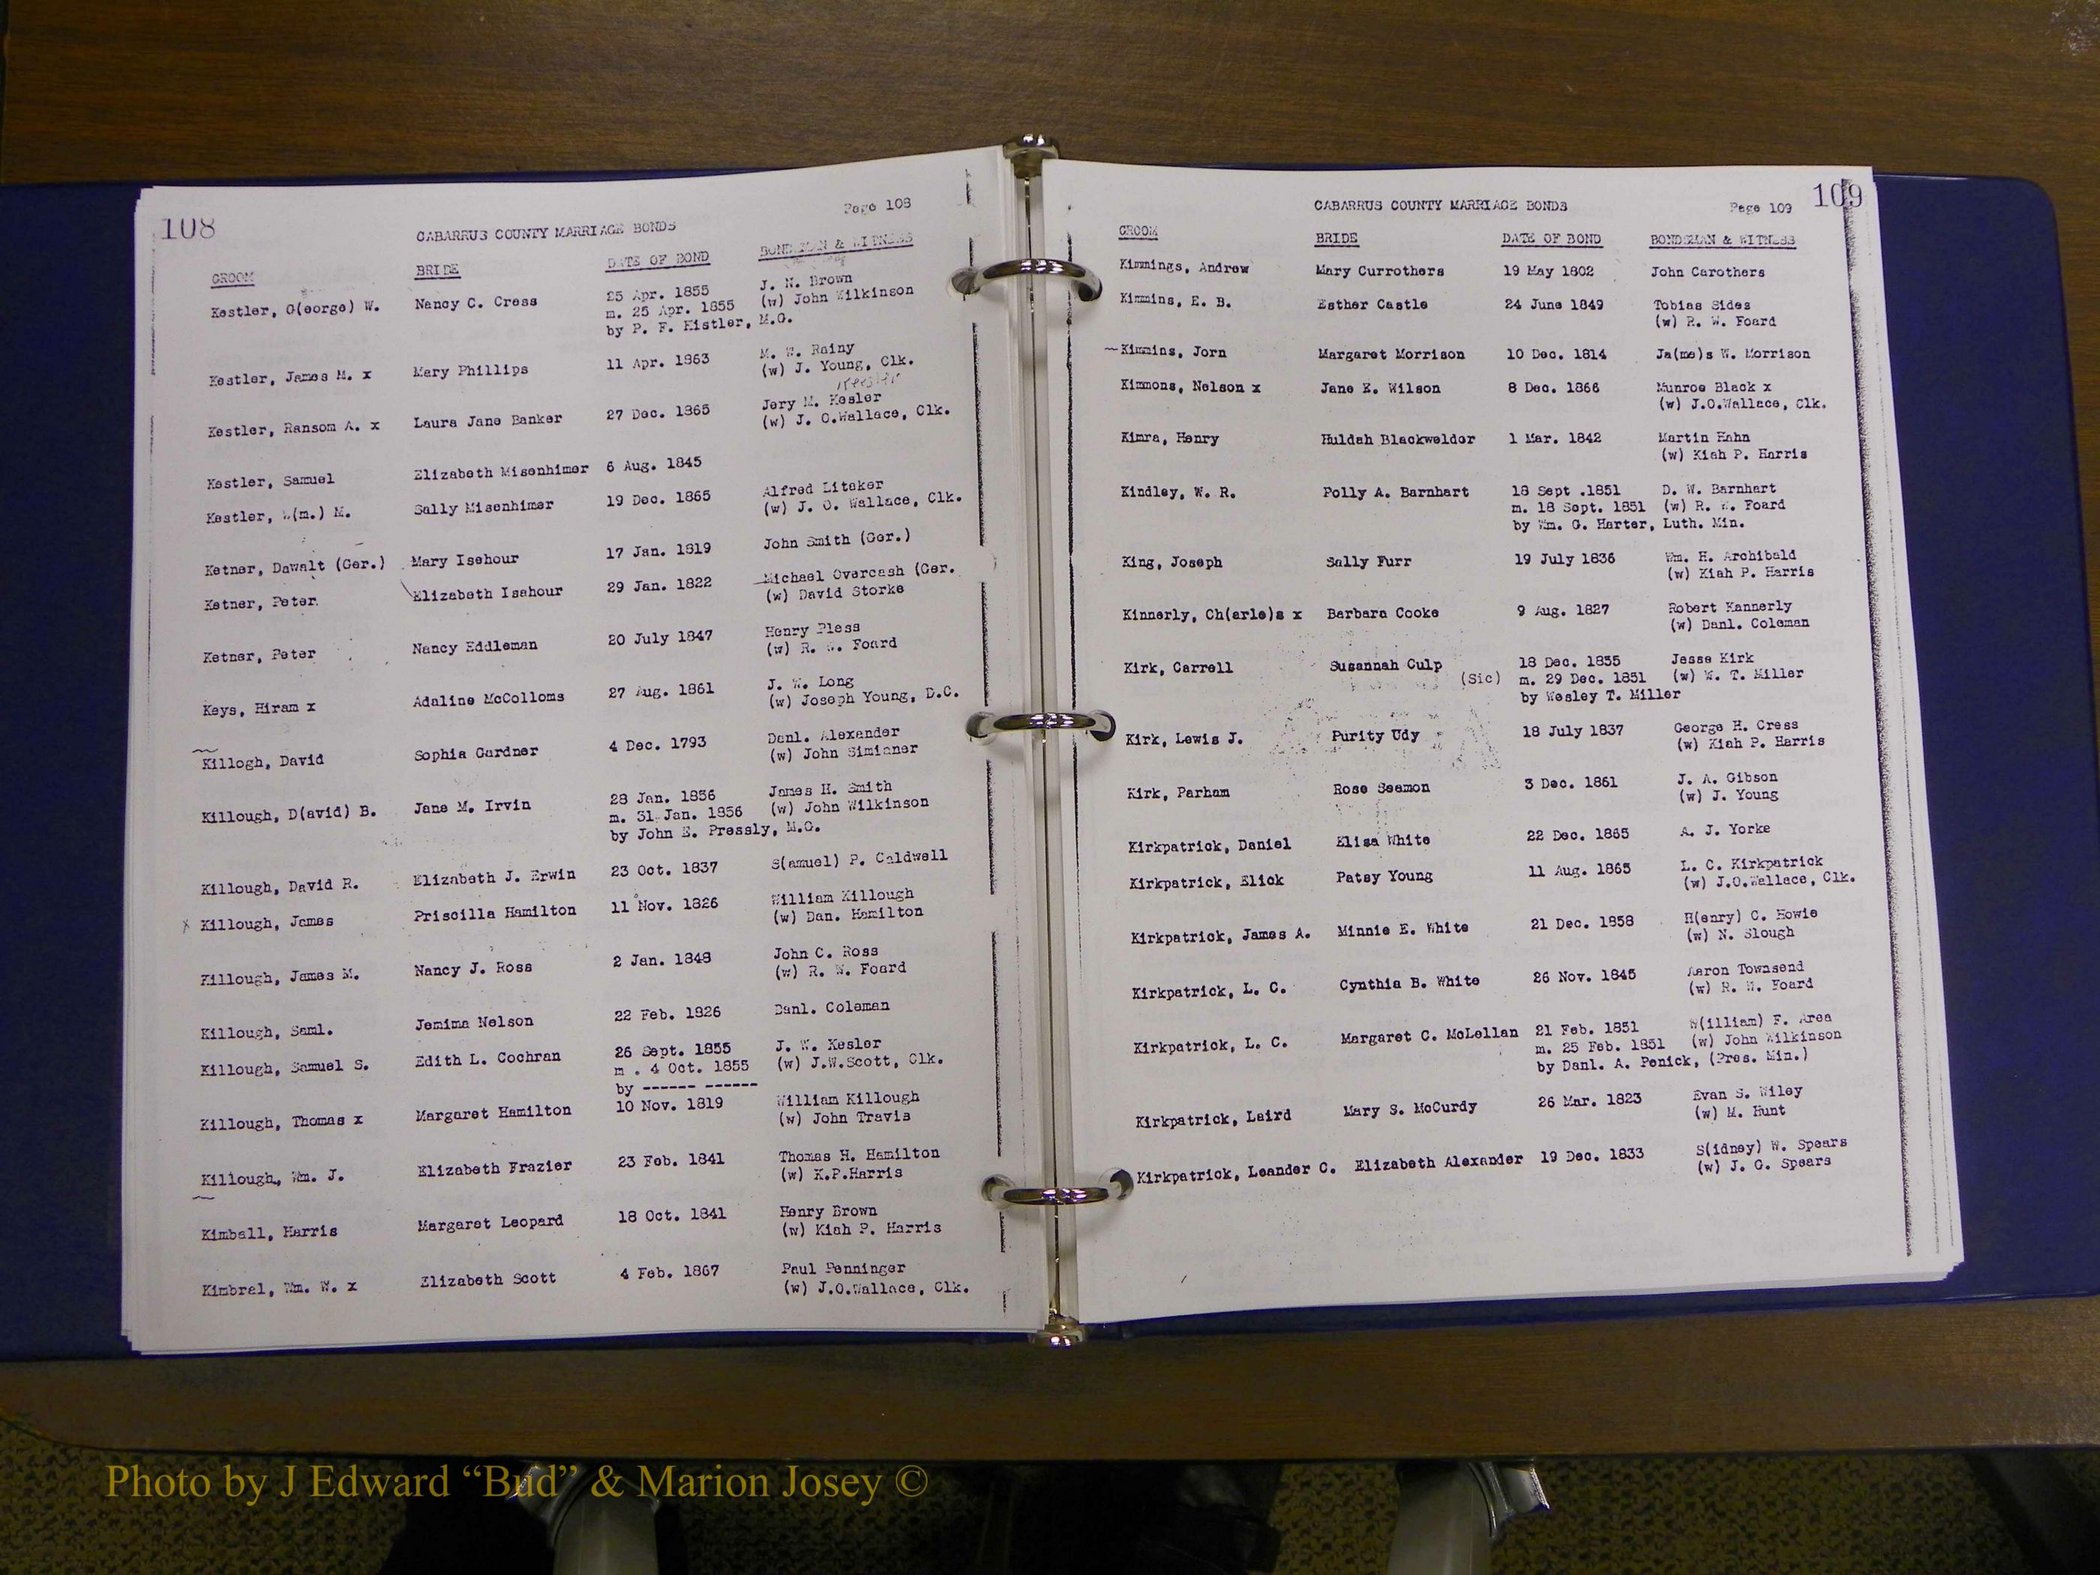 108
Page 108
CABARRUS COUNTY MARRIAGE BONDS
GROOM BRIDE DATE OF BOND BONDSMAN & WITNESS
Kestler, G(eorge) W. Nancy C. Cress 25 Apr. 1855 J. N. Brown
m. 25 Apr. 1855 (w) John Wilkinson
by P. F. Kistler, M.G.
Kestler, James M. x Mary Phillips 11 Apr. 1863 M. W. Rainy
(w) J. Young, Clk.
Kestler, Ransom A. x Laura Jane Banker 27 Dec. 1865 Jery M. Kesler
(w) J. O.Wallace, Clk.
Kestler, Samuel Elizabeth Misenhimer 6 Aug. 1845
Kestler, W(m.) M. Sally Misenhimer 19 Dec. 1865 Alfred Litaker
(w) J. O. Wallace, Clk.
Ketner, Dawalt (Ger.) Mary Isehour 17 Jan. 1819 John Smith (Ger.)
Ketner, Peter Elizabeth Isehour 29 Jan. 1822 Michael Overcash (Ger.
(w) David Storke
Ketner, Peter Nancy Eddleman 20 July 1847 Henry Pless
(w) R. W. Foard
Keys, Hiram x Adaline McColloms 27 Aug. 1861 J. W. Long
(w) Joseph Young, D.C.
Killogh, David Sophia Gardner 4 Dec. 1793 Danl. Alexander
(w) John Simianer
Killough, D(avid) B. Jane M. Irvin 28 Jan. 1856 James H. Smith
m. 31 Jan. 1856 (w) John Wilkinson
by John E. Pressly, M.G.
Killough, David R. Elizabeth J. Erwin 23 Oct. 1837 S(amuel) P. Caldwell
Killough, James Priscilla Hamilton 11 Nov. 1826 William Killough
(w) Dan. Hamilton
Killough, James M. Nancy J. Ross 2 Jan. 1848 John C. Ross
(w) R. W. Foard
Killough, Saml. Jemima Nelson 22 Feb. 1826 Danl. Coleman
Killough, Samuel S. Edith L. Cochran 26 Sept. 1855 J. W. Kesler
m . 4 Oct. 1855 (w) J.W.Scott, Clk.
by ------ ------
Killough, Thomas x Margaret Hamilton 10 Nov. 1819 William Killough
(w) John Travis
Killough, Wm. J. Elizabeth Frazier 23 Feb. 1841 Thomas H. Hamilton
(w) K.P.Harris
Kimball, Harris Margaret Leopard 18 Oct. 1841 Henry Brown
(w) Kiah P. Harris
Kimbrel, Wm. W. x Elizabeth Scott 4 Feb. 1867 Paul Penninger
(w) J.O.Wallace, Clk.
109
CABARRUS COUNTY MARRIAGE BONDS Page 109
GROOM BRIDE DATE OF BOND BONDSMAN & WITNESS
Kimmings, Andrew Mary Currothers 19 May 1802 John Carothers
Kimmins, E. B. Esther Castle 24 June 1849 Tobias Sides
(w) R. W. Foard
Kimmins, Jorn Margaret Morrison 10 Dec. 1814 Ja(me)s W. Morrison
Kimmons, Nelson x Jane E. Wilson 8 Dec. 1866 Munroe Black x
(w) J.O.Wallace, Clk.
Kimra, Henry Huldah Blackwelder 1 Mar. 1842 Martin Hahn
(w) Kiah P. Harris
Kindley, W. R. Polly A. Barnhart 18 Sept .1851 D. W. Barnhart
m. 18 Sept. 1851 (w) R. W. Foard
by Wm. G. Harter, Luth. Min.
King, Joseph Sally Furr 19 July 1836 Wm. H. Archibald
(w) Kiah P. Harris
Kinnerly, Ch(arle)s x Barbara Cooke 9 Aug. 1827 Robert Kannerly
(w) Danl. Coleman
Kirk, Carrell Susannah Culp 18 Dec. 1855 Jesse Kirk
(Sic) m. 29 Dec. 1851 (w) W. T. Miller
by Wesley T. Miller
Kirk, Lewis J. Purity Udy 18 July 1837 George H. Cress
(w) Kiah P. Harris
Kirk, Parham Rose Seamon 3 Dec. 1861 J. A. Gibson
(w) J. Young
Kirkpatrick, Daniel Elisa White 22 Dec. 1865 A. J. Yorke
Kirkpatrick, Elick Patsy Young 11 Aug. 1865 L. C. Kirkpatrick
(w) J.O.Wallace, Clk.
Kirkpatrick, James A. Minnie E. White 21 Dec. 1858 H(enry) C. Howie
(w) N. Slough
Kirkpatrick, L. C. Cynthia B. White 26 Nov. 1845 Aaron Townsend
(w) R. W. Foard
Kirkpatrick, L. C. Margaret C. McLellan 21 Feb. 1851 W(illiam) F. Area
m. 25 Feb. 1851 (w) John Wilkinson
by Danl. A. Penick, (Pres. Min.)
Kirkpatrick, Laird Mary S. McCurdy 26 Mar. 1823 Evan S. Wiley
(w) M. Hunt
Kirkpatrick, Leander C. Elizabeth Alexander 19 Dec. 1833 S(idney) W. Spears
(w) J. G. Spears
Photo by J Edward “Bud” & Marion Josey ©